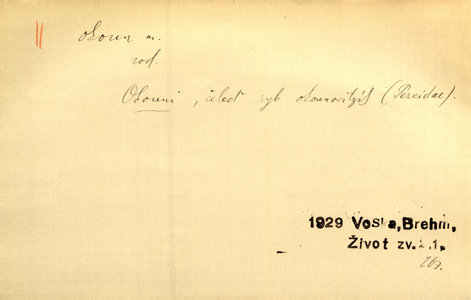 okoun m.
rod.
Okouni, čeleď ryb okounovitých (Percidae).
1929 Voska, Brehm,
Život zv. 2.1.